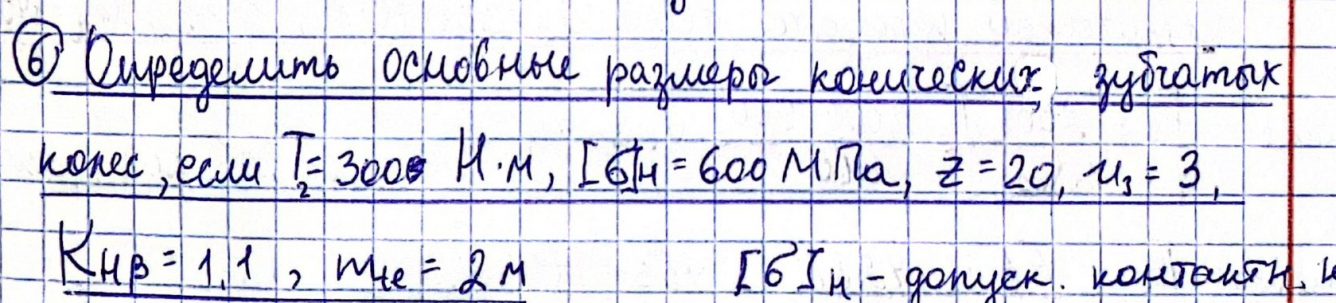 ⑥ Определить основные размеры конических зубчатых
колес, если T₂=300 Н·м, [б]н=600 МПа, z=20, u₃=3,
Kнβ=1,1, mte=2м [б]н - допуск. контактн.